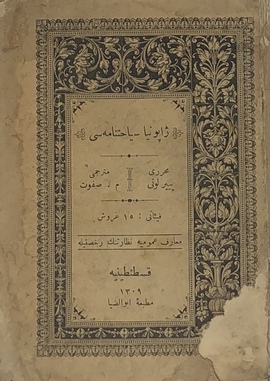 ژاپونیا سیاحتنامه‌سی
محرری
مترجمی
پییر لوتی
م . صفوت
فیئاتی : ١٥ غروش
معارف عمومیه نظارتنك رخصتیله
قسطنطینیه
١٣٠٩
مطبعهٔ ابوالضیا